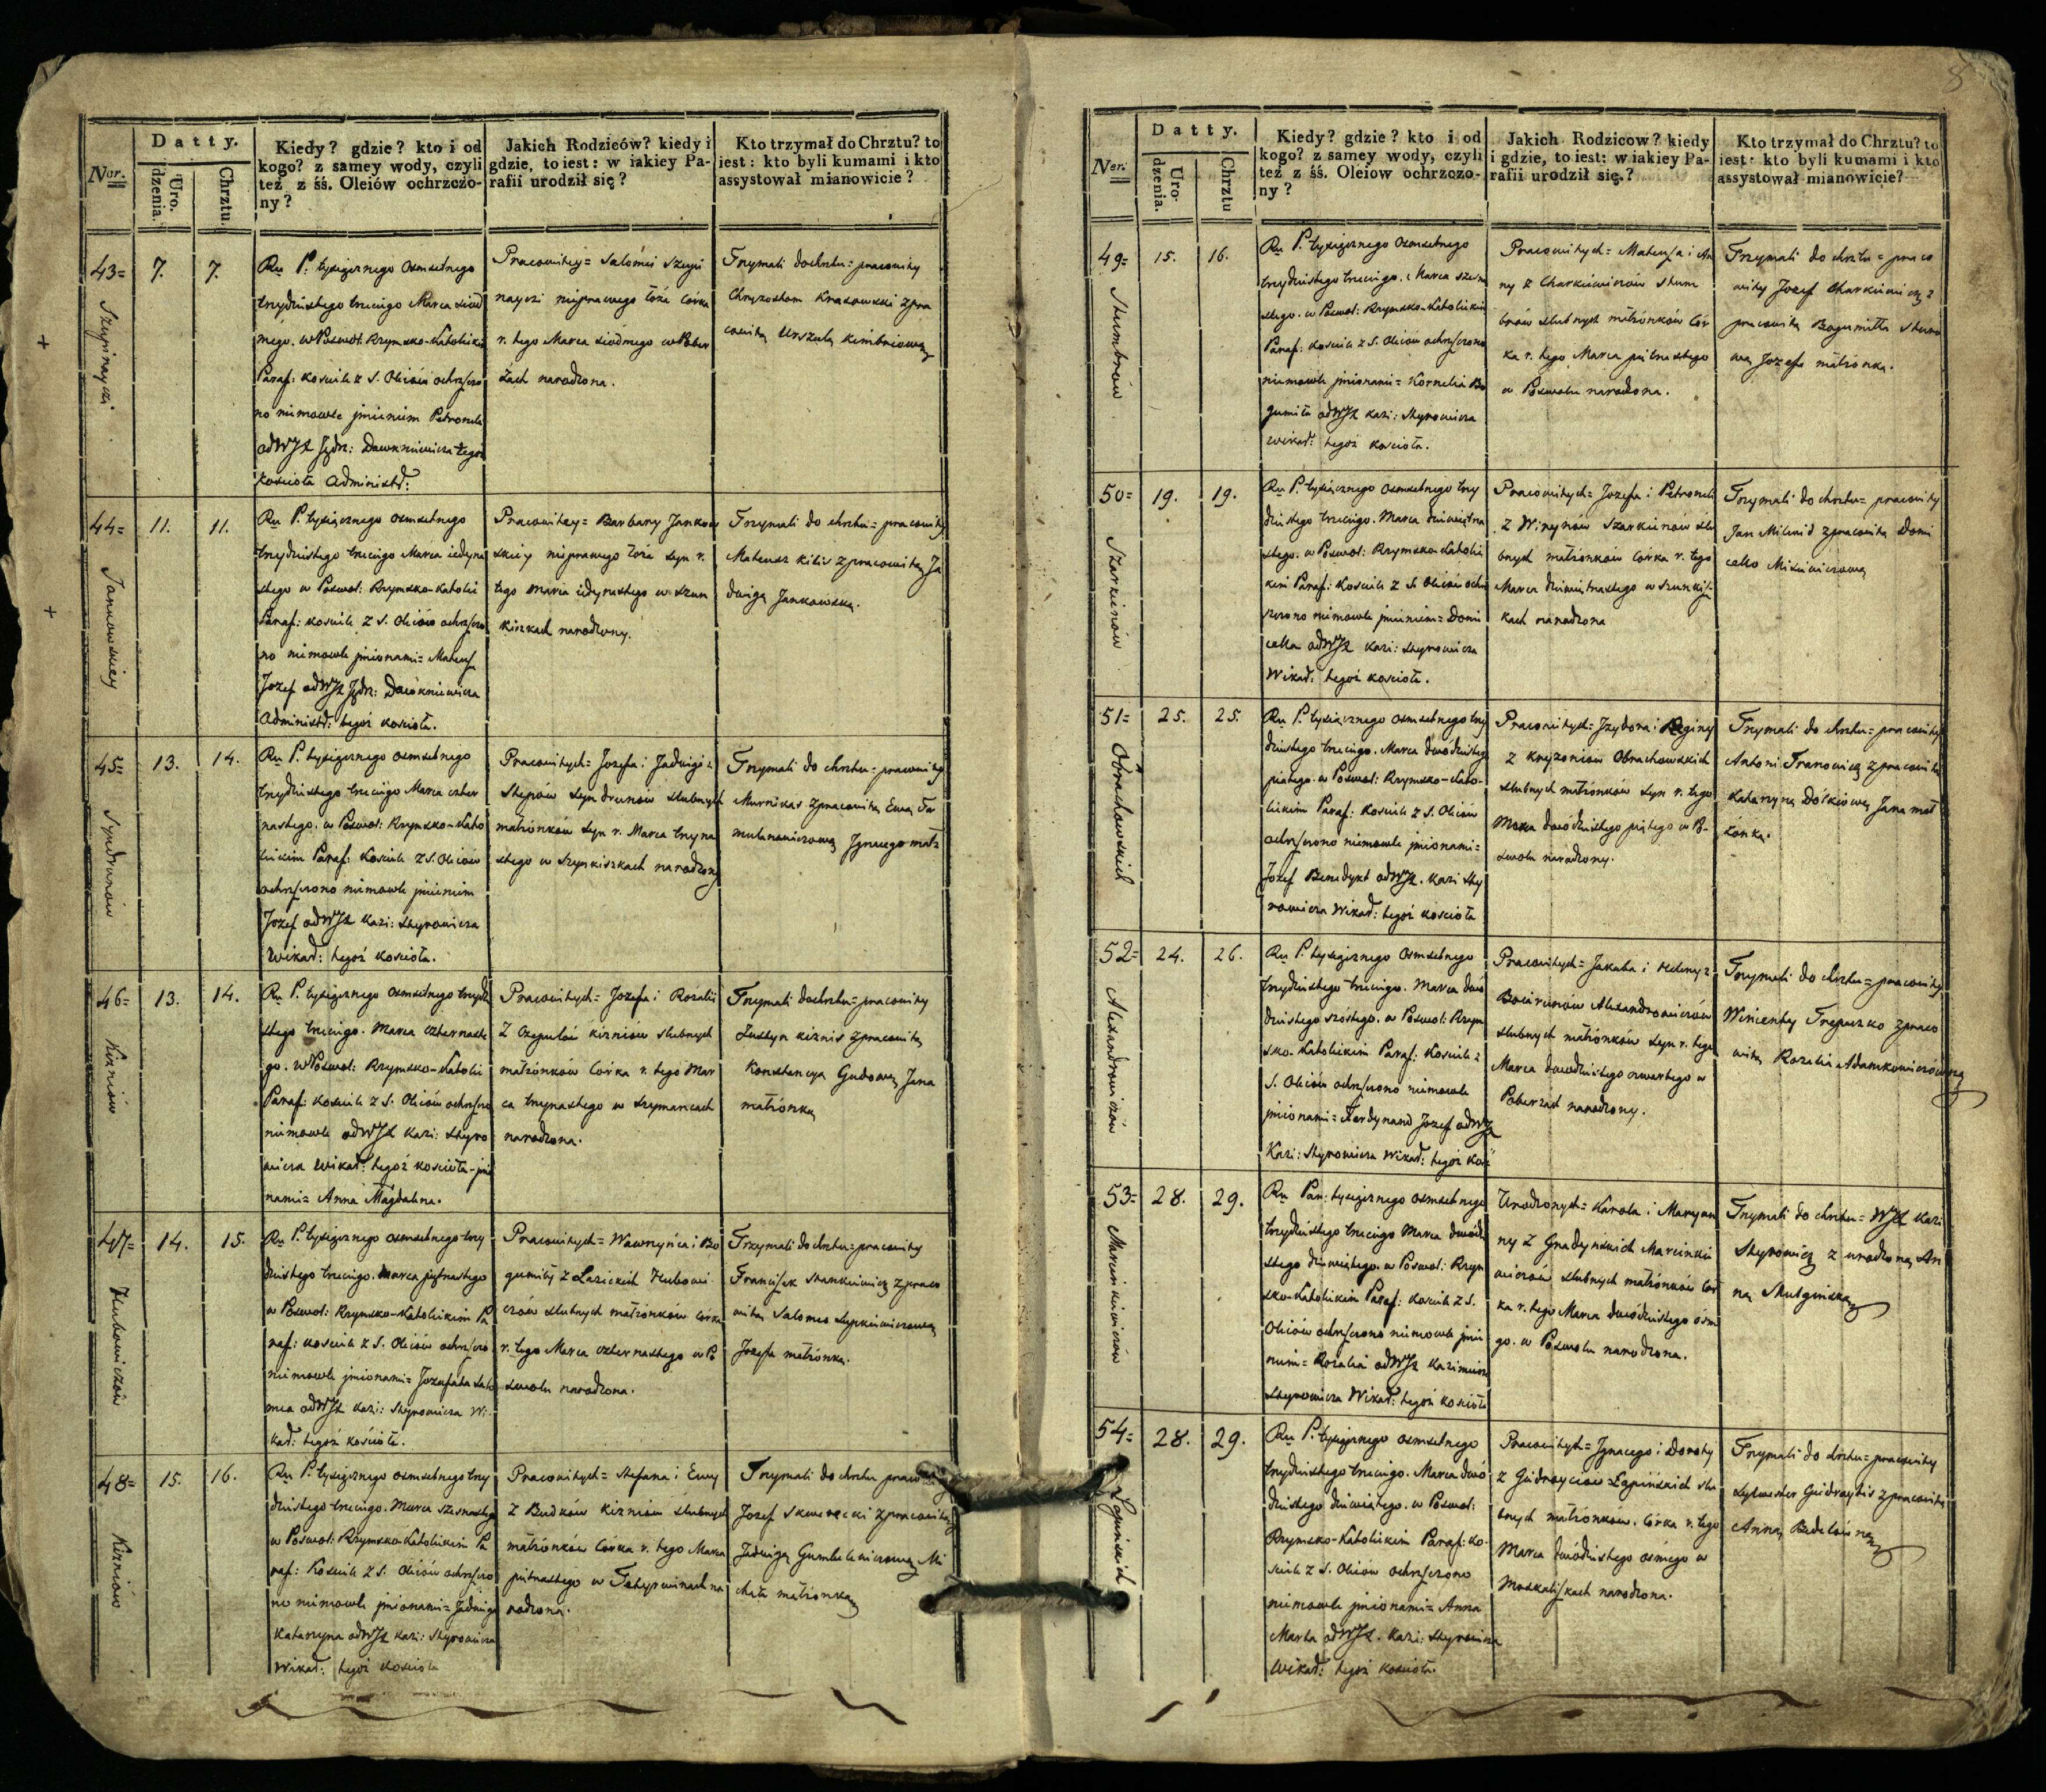 8
Datty.
Kiedy? gdzie? kto i od
kogo? z samey wody, czyli
też z śś. Oleiów ochrzczo-
ny?
Jakich Rodziców? kiedy i
gdzie, to iest: w iakiey Pa-
rafii urodził się?
Kto trzymał do Chrztu? to
iest: kto byli kumami i kto
assystował mianowicie?
Ner.
Uro-
dzenia.
Chrztu.
43=
7.
7.
Ru P: tysiącznego osmsetnego
trzydziestego trzeciego Marca siód
mego. w Poswol: Rzymsko-Katolickim
Paraf: kosciele z S. Oleiów ochrzczo
no niemowle jmieniem Petronela
od WJX Jędrz: Dawkniewicza tegoż
kościoła Administr:
Pracowitey= Salomei Szepi
nayci nieprawego łoża córka
r. tego Marca siódmego w Pober
żach narodzona.
Trzymali do chrztu= pracowity
Chryzostom Krasowski z pra
cowitą Urszulą
44=
Jankowskiey
11.
11.
Ru P. tysiącznego osmsetnego
trzydziestego trzeciego Marca iedyna
stego w Poswol: Rzymsko-Katolic
Paraf: kosciele z S. Oleiów ochrzczo
no niemowle jmionami= Mateusz
Jozef od WJX Jędrz: Dawkniewicza
Administr: tegoż kościoła.
Pracowitey= Barbary Jankow
skiey nieprawego łoża syn r.
tego Marca iedynastego w Szun
kiszkach narodzony.
Trzymali do chrztu= pracowity
Mateusz Kiżis z pracowitą Ja
dwigą Jankowską.
45=
Syndrunów
13.
14.
Ru P. tysiącznego osmsetnego
trzydziestego trzeciego Marca czter
nastego. w Poswol: Rzymsko-Kato
lickim Paraf: Kosciele z S. Oleiów
ochrzczono niemowle jmieniem
Jozef od WJX Kazi: Skyrowicza
Wikar: tegoż kościoła.
Pracowitych= Jozefa i Jadwigi z
Stepów Syndrunów slubnych
małżonków syn r. Marca trzyna
stego w Szynkiszkach narodzony
Trzymali do chrztu= pracowity
Murnikas z pracowitą Ewą
Jgnacego małż
46=
Kiżniów
13.
14.
Ru P. tysiącznego osmsetnego trzydz
stego trzeciego. Marca czternaste
go. w Poswol: Rzymsko-Katolic
Paraf: Kosciele z S. Oleiów ochrzczo
niemowle od WJX Kazi: Skyro
wicza Wikar: tegoż kościoła jmio
nami= Anna Magdalena.
Pracowitych= Jozefa i Rozalii
z Czepulów Kiżniów slubnych
małżonków córka r. tego Mar
ca trzynastego w Szymancach
narodzona.
Trzymali do chrztu= pracowity
Justyn Kiżnis z pracowitą
Konstancyą Gudową Jana
małżonką
47=
Hubowiczów
14.
15.
Ru P. tysiącznego osmsetnego trzy
dziestego trzeciego. Marca piętnastego
w Poswol: Rzymsko-Katolickim Pa
raf: kosciele z S. Oleiów ochrzczo
niemowle jmionami= Jozefata Salo
mea od WJX Kazi: Skyrowicza Wi-
kar: tegoż kościoła.
Pracowitych= Wawrzyńca i Bo
gumiły z Łazickich Hubowi
czów slubnych małżonków córka
r. tego Marca czternastego w Po
swolu narodzona.
Trzymali do chrztu= pracowity
Franciszek Stankiewicz z praco
witą Salomeą
Jozefa małżonką.
48=
Kiżniów
15.
16.
Ru P. tysiącznego osmsetnego trzy
dziestego trzeciego. Marca szesnastego
w Poswol: Rzymsko-Katolickim Pa
raf: Kosciele z S. Oleiów ochrzczo
no niemowle jmionami= Jadwiga
Katarzyna od WJX Kazi: Skyrowicza
Wikar: tegoż kościoła
Pracowitych= Stefana i Ewy
z Budków Kiżniów slubnych
małżonków córka r. tego Marca
pietnastego w na
rodzona.
Trzymali do chrztu pracowity
Jozef z pracowitą
Jadwigą Mi
chała małżonką
Datty.
Kiedy? gdzie? kto i od
kogo? z samey wody, czyli
też z śś. Oleiow ochrzczo-
ny?
Jakich Rodzicow? kiedy
i gdzie, to iest: w iakiey Pa-
rafii urodził się?
Kto trzymał do Chrztu? to
iest: kto byli kumami i kto
assystował mianowicie?
Ner.
Uro-
dzenia.
Chrztu
49=
Stumbrów
15.
16.
Ru P. tysiącznego osmsetnego
trzydziestego trzeciego. Marca szesna
stego. w Poswol: Rzymsko-Katolickim
Paraf: Kosciele z S. Oleiów ochrzczono
niemowle jmionami= Kornelia Bo
gumiła od WJX Kazi: Skyrowicza
Wikar: tegoż kościoła.
Pracowitych= Mateusza i An
ny z Charkiewiczów Stum
brów slubnych małżonków cór
ka r. tego Marca pietnastego
w Poswolu narodzona.
Trzymali do chrztu= praco
wity Jozef Charkiewicz z
pracowitą Bogumiłą
Jozefa małżonką.
50=
Szarkienów
19.
19.
Ru P. tysiącznego osmsetnego trzy
dziestego trzeciego. Marca dziewietna
stego. w Poswol: Rzymsko-Katolic
kim Paraf: Kosciele z S. Oleiów ochr
zczono niemowle jmieniem= Domi
cella od WJX Kazi: Skyrowicza
Wikar: tegoż kościoła.
Pracowitych= Jozefa i Petroneli
z Winynów Szarkienów slu
bnych małżonków córka r. tego
Marca dziewietnastego w Szunkisz
kach narodzona
Trzymali do chrztu= pracowity
Jan Milewid z pracowitą Domi
cellą
51=
Obrachowskich
25.
25.
Ru P. tysiącznego osmsetnego trzy
dziestego trzeciego. Marca dwódziestego
piątego. w Poswol: Rzymsko-Kato-
lickim Paraf: Kosciele z S. Oleiów
ochrzczono niemowle jmionami=
Jozef Benedykt od WJX. Kazi Sky
rowicza Wikar: tegoż kościoła
Pracowitych= Jzydora i Reginy
z Kryżoniów Obrachowskich
slubnych małżonków syn r. tego
Marca dwódziestego piątego w Po-
swolu narodzony.
Trzymali do chrztu= pracowity
Antoni Franowicz z pracowitą
Katarzyną Jana mał
żonką.
52=
Alexandrowiczów
24.
26.
Ru P. tysiącznego osmsetnego
trzydziestego trzeciego. Marca dwó
dziestego szóstego. w Poswol: Rzym
sko-Katolickim Paraf: Kosciele z
S. Oleiów ochrzczono niemowle
jmionami= Ferdynand Jozef od WJX
Kazi: Skyrowicza Wikar: tegoż Kość
Pracowitych= Jakuba i Heleny z
Alexandrowiczów
slubnych małżonków syn r. tego
Marca dwódziestego czwartego w
Poberżach narodzony.
Trzymali do chrztu= pracowity
Wincenty Trepuszko z praco
witą Rozalią Adamkowiczówną
53=
Marcinkiewiczów
28.
29.
Ru Pan: tysiącznego osmsetnego
trzydziestego trzeciego Marca dwódzie
stego dziewiątego. w Poswol: Rzym
sko-Katolickim Paraf: Kosciele z S.
Oleiów ochrzczono niemowle jmie
niem= Rozalia od WJX Kazimierza
Skyrowicza Wikar: tegoż kościoła
Urodzonych= Karola i Maryan
ny z Gradynskich Marcinkie
wiczów slubnych małżonków cór
ka r. tego Marca dwódziestego ósm
go. w Poswolu narodzona.
Trzymali do chrztu= WJX Kazi
Skyrowicz z urodzoną An
ną
54=
Łapińskich
28.
29.
Ru P. tysiącznego osmsetnego
trzydziestego trzeciego. Marca dwó
dziestego dziewiątego. w Poswol:
Rzymsko-Katolickim Paraf: Ko-
sciele z S. Oleiów ochrzczono
niemowle jmionami= Anna
Marta od WJX. Kazi: Skyrowicza
Wikar: tegoż kościoła.
Pracowitych= Jgnacego i Doroty
z Giedroyciów Łapińskich slu
bnych małżonków. córka r. tego
Marca dwódziestego ósmego w
Moskaliszkach narodzona.
Trzymali do chrztu= pracowity
Sylwester Giedraytis z pracowitą
Anną